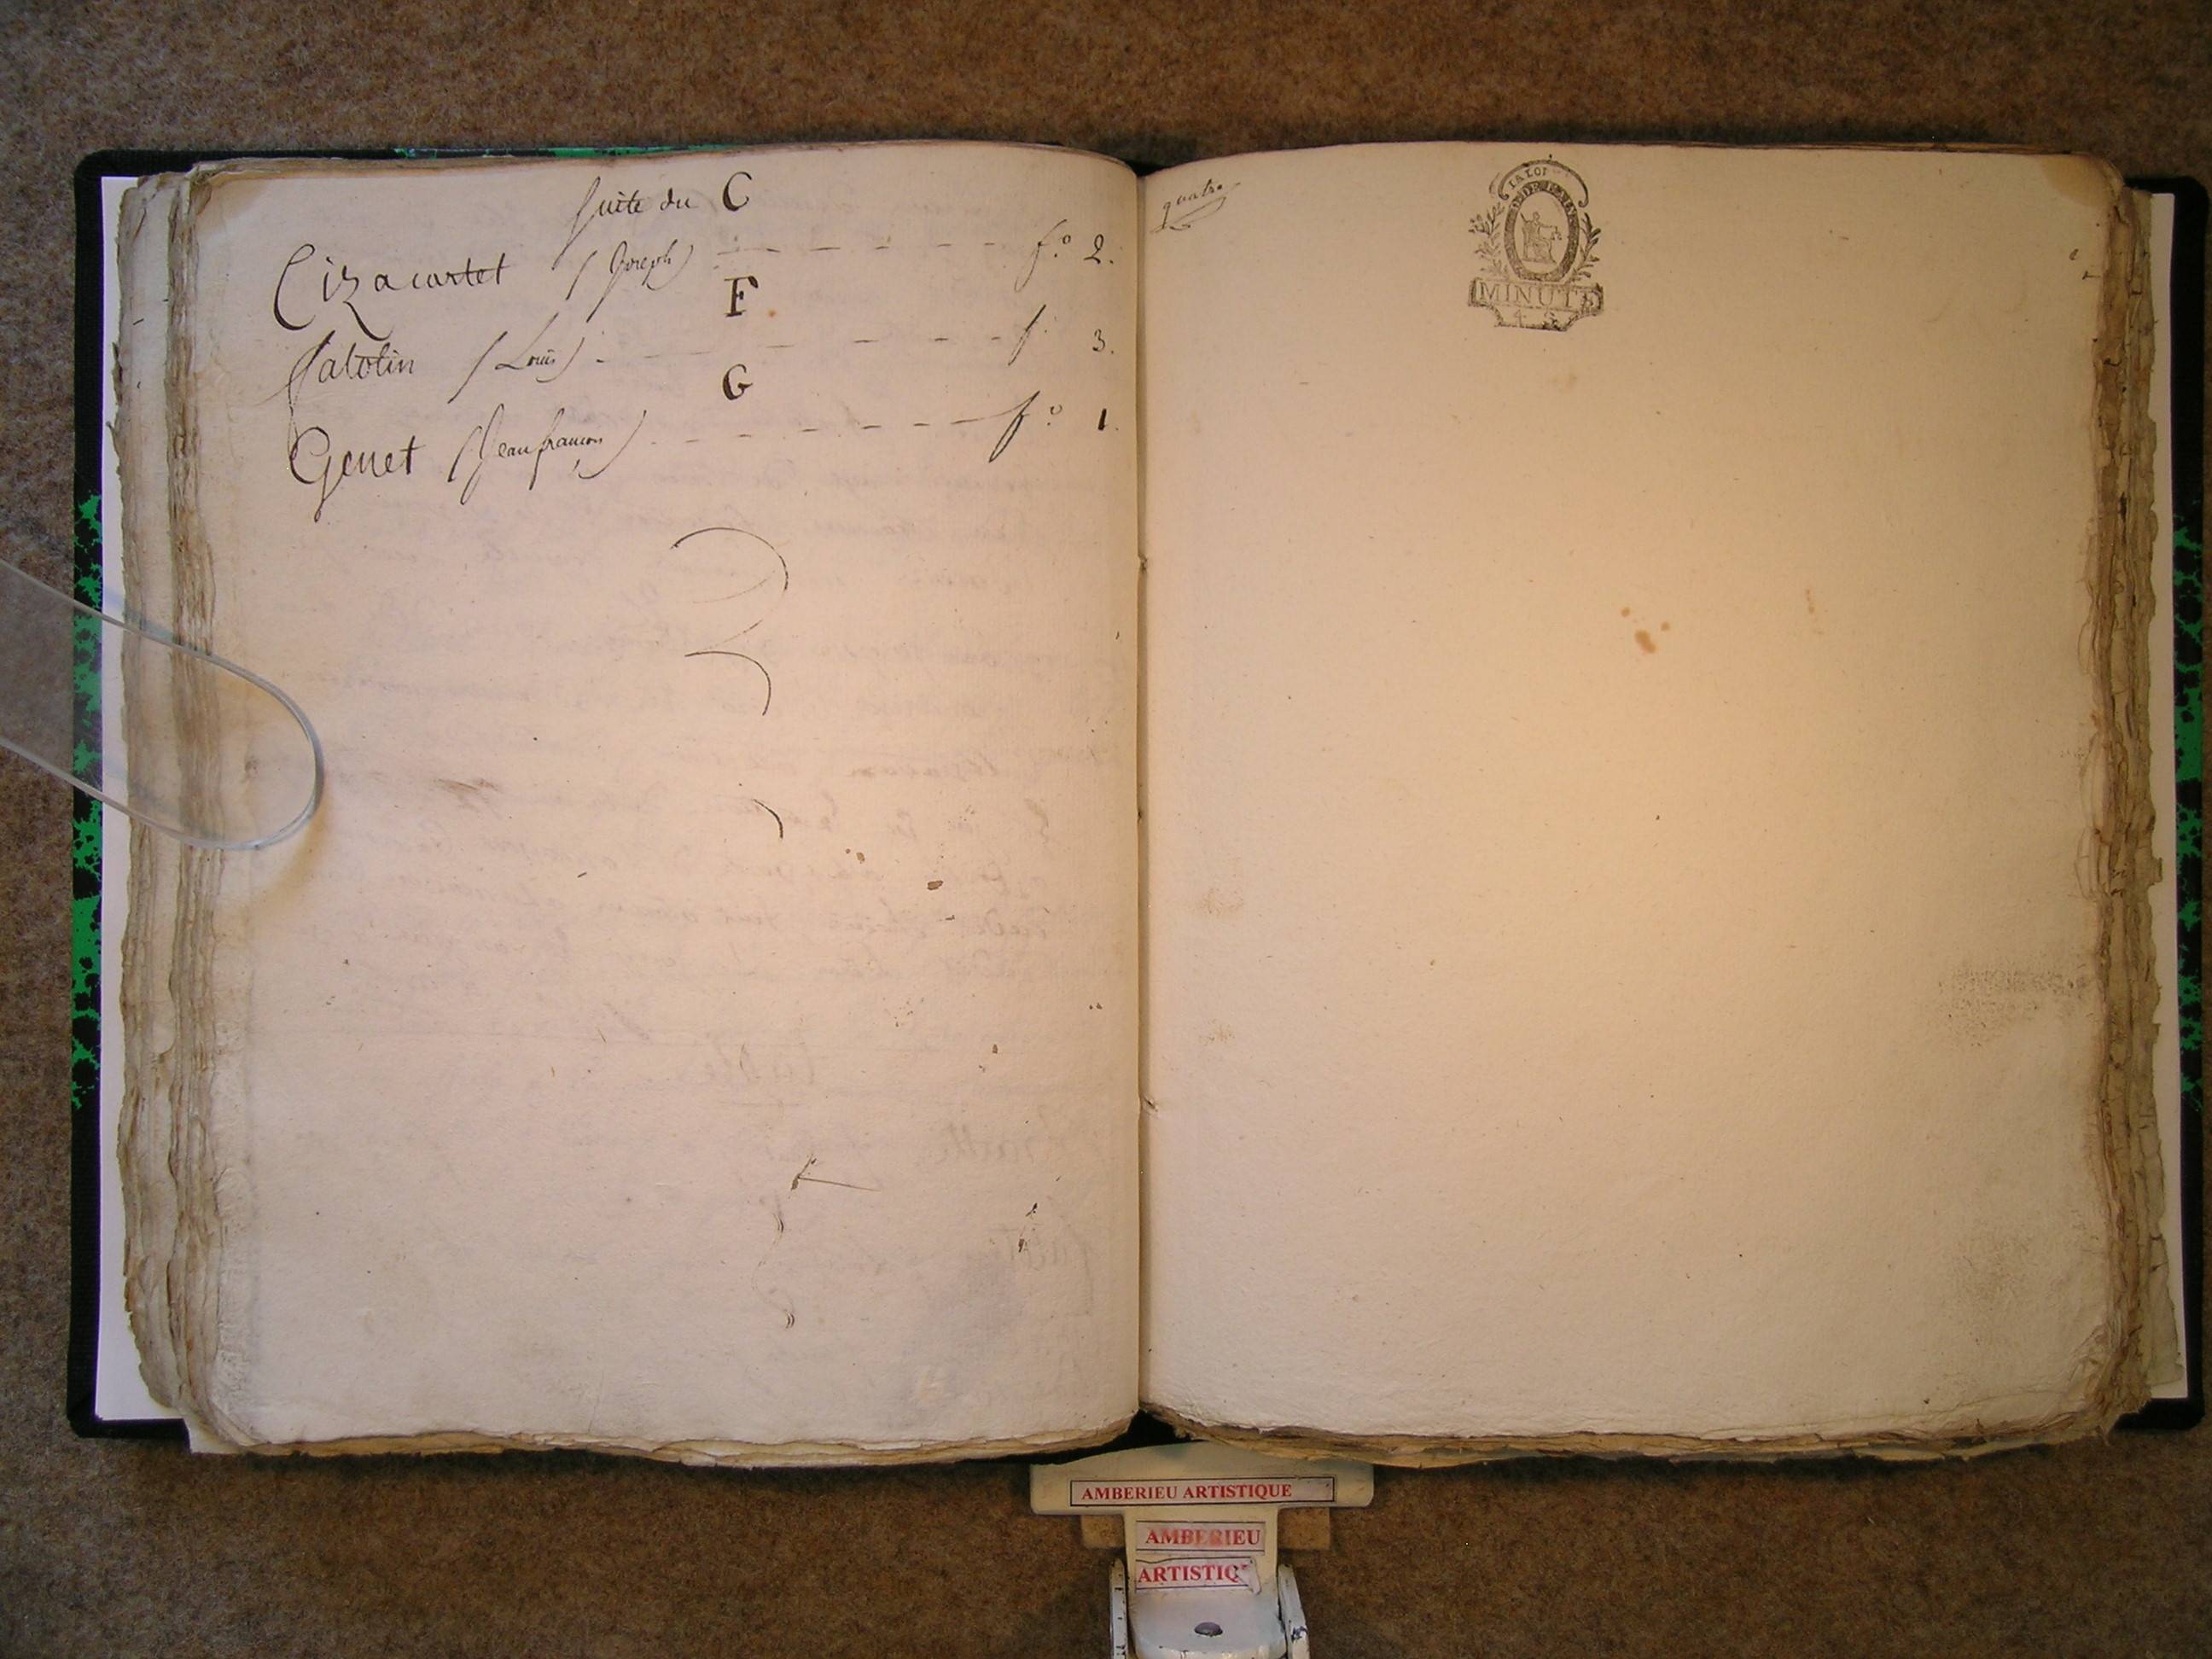 Suite du C
Cizacartet (Joseph) - - - - - - f.o 2.
F
falotin (Louis) - - - - - - f. 3.
G
Genet (Jean françois) - - - - - - f.o 1.
quatre
LA LOI
MINUTE
AMBERIEU ARTISTIQUE
AMBERIEU
ARTISTIQ